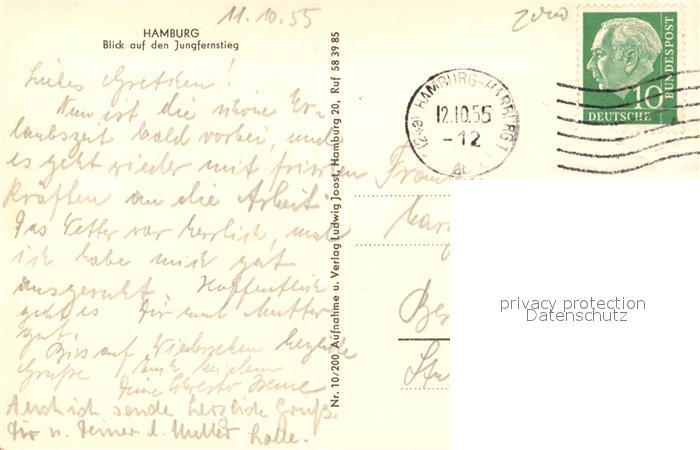 11.10.55
HAMBURG
Blick auf den Jungfernstieg
Liebes Gretchen!
Nun ist die schöne Ur-
laubszeit bald vorbei, und
es geht wieder mit frischen
Kräften an die Arbeit.
Das Wetter war herrlich, und
ich habe mich gut
ausgeruht. Hoffentlich
geht es Dir und Mutter
gut.
Bis auf Wiedersehen herzliche
Grüße
Deine Irene
Auch ich sende herzliche Grüße
Dir u. Deiner l. Mutter Lotte.
Nr. 10/200 Aufnahme u. Verlag Ludwig Joost, Hamburg 20, Ruf 58 39 85
HAMBURG-HARBURG 1
12.10.55
-12
DEUTSCHE
BUNDESPOST
10
privacy protection
Datenschutz